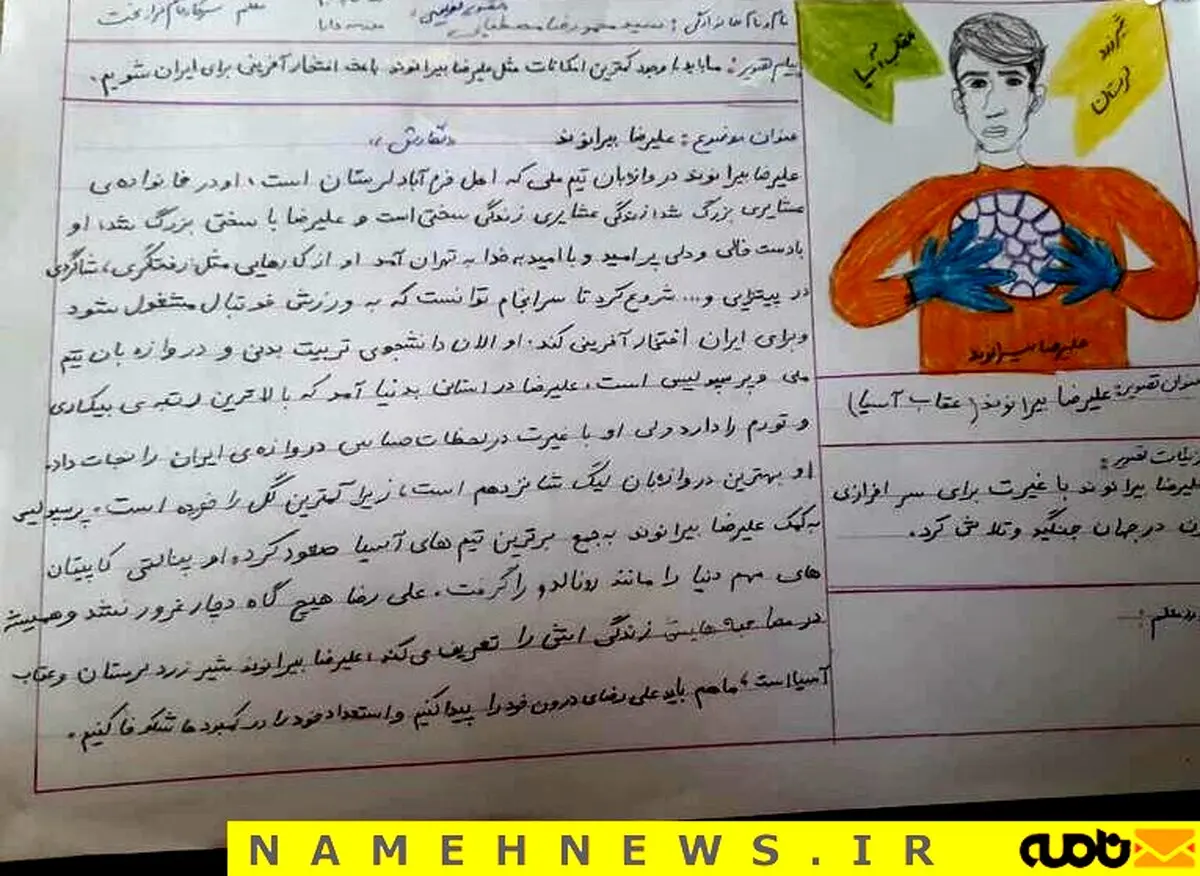 نام و نام خانوادگی : سید محمد رضا مصطفایی
معلم سرکار خانم
پیام هنر : ما باید با وجود کمترین امکانات مثل علیرضا بیرانوند باعث افتخار آفرینی برای ایران شویم.
عنوان موضوع : علیرضا بیرانوند «نگارش»
علیرضا بیرانوند دروازه‌بان تیم ملی که اهل خرم آباد لرستان است، او در خانواده‌ی
عشایری بزرگ شد، زندگی عشایری زندگی سختی است و علیرضا با سختی بزرگ شد، او
با دست خالی و دلی پر امید و با امید به خدا به تهران آمد او از کارهایی مثل رفتگری، شاگردی
در پیتزایی و... شروع کرد تا سرانجام توانست که به ورزش فوتبال مشغول شود
و برای ایران افتخار آفرینی کند. او الان دانشجوی تربیت بدنی و دروازه بان تیم
ملی و پرسپولیس است، علیرضا در استانی بدنیا آمد که بالاترین رتبه‌ی بیکاری
و تورم را دارد ولی او با غیرت در لحظات حساس دروازه‌ی ایران را نجات داد.
او بهترین دروازه‌بان لیگ شانزدهم است، زیرا کمترین گل را خورده است. پرسپولیس
به کمک علیرضا بیرانوند به جمع برترین تیم های آسیا صعود کرد، او پنالتی کاپیتان
های مهم دنیا را مانند رونالدو را گرفت. علی رضا هیچ گاه دچار غرور نشد و همیشه
در مصاحبه هایش زندگی اش را تعریف می‌کند، علیرضا بیرانوند شیر زرد لرستان و عقاب
آسیا است، ما هم باید علی رضای درون خود را پیدا کنیم و استعداد خود را در کمبودها شکوفا کنیم.
عقاب آسیا
شیر زرد
لرستان
علیرضا بیرانوند
عنوان تصویر: علیرضا بیرانوند (عقاب آسیا)
جزئیات تصویر:
علیرضا بیرانوند با غیرت برای سر افرازی
در جهان جنگید و تلاش کرد.
معلم :
NAMEHNEWS.IR
نامه